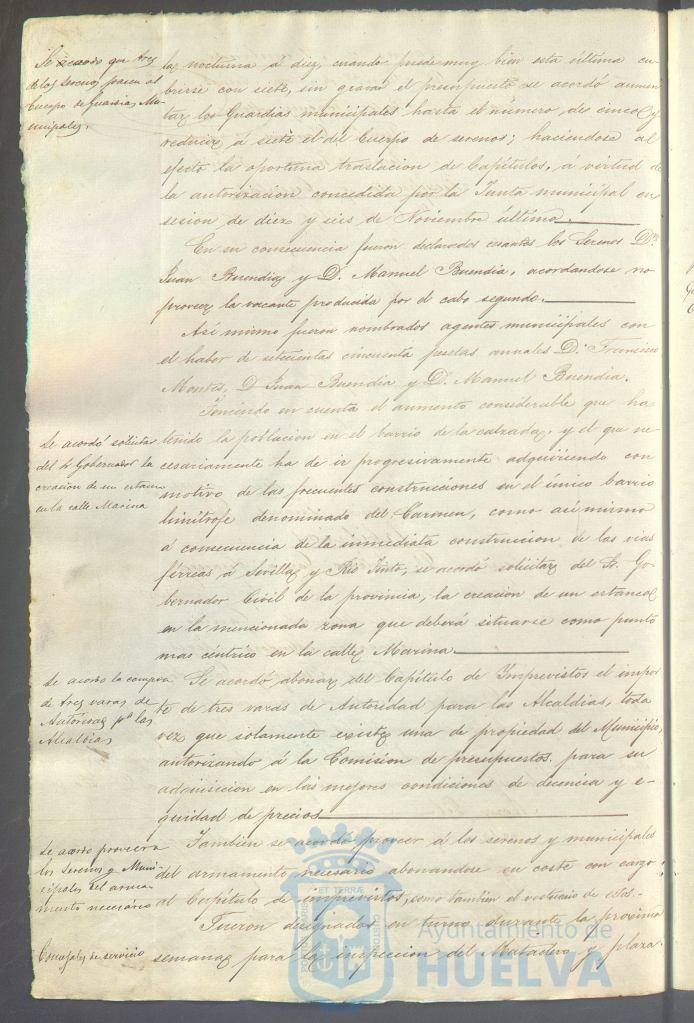 Se acordo que tres
de los Serenos pasen al
Cuerpo de Guardias Mu-
nicipales.
la nocturna á diez, cuando puede muy bien esta última cu-
brirse con siete, sin gravar el presupuesto se acordó aumen-
tar los Guardias municipales hasta el número de cinco y
reducir á siete el del Cuerpo de serenos; haciendose al
efecto la oportuna traslacion de Capítulos, á virtud de
la autorizacion concedida por la Junta municipal en
sesion de diez y seis de Noviembre último.
En su consecuencia fueron declarados cesantes los Serenos D.
Juan Buendia y D. Manuel Buendia, acordandose no
proveer la vacante producida por el cabo segundo.
Asi mismo fueron nombrados agentes municipales con
el haber de setecientas cincuenta pesetas anuales D. Francisco
Montes, D Juan Buendia y D. Manuel Buendia.
Se acordó solicitar
del Sr Gobernador la
creacion de un estanco
en la calle Marina
Teniendo en cuenta el aumento considerable que ha
tenido la poblacion en el barrio de la calzada, y el que ne-
cesariamente ha de ir progresivamente adquiriendo con
motivo de las frecuentes construcciones en el único barrio
limítrofe denominado del Carmen, como asi mismo
á consecuencia de la inmediata construccion de las vias
férreas á Sevilla y Rio Tinto, se acordó solicitar del Sr. Go-
bernador Civil de la provincia, la creacion de un estanco
en la mencionada zona que deberá situarse como punto
mas céntrico en la calle Marina.
Se acordo la compra
de tres varas de
Autoridad pa las
Alcaldias
Se acordó abonar del Capítulo de Imprevistos el impor-
te de tres varas de Autoridad para las Alcaldias, toda
vez que solamente existe una de propiedad del Municipio,
autorizando á la Comision de presupuestos para su
adquisicion en las mejores condiciones de decencia y e-
quidad de precios.
Se acordo proveer a
los Serenos y Muni-
cipales del arma-
mento necesario
Tambien se acordó proveer á los serenos y municipales
del armamento necesario abonandose su coste con cargo
al Capítulo de imprevistos, como tambien el vestuario de estos.
Concejales de servicio
Fueron designados en turno durante la próxima
semana para la inspeccion del Matadero y plaza
PORTUS MARIS
ET TERRAE
CUSTODIA
Ayuntamiento de
HUELVA